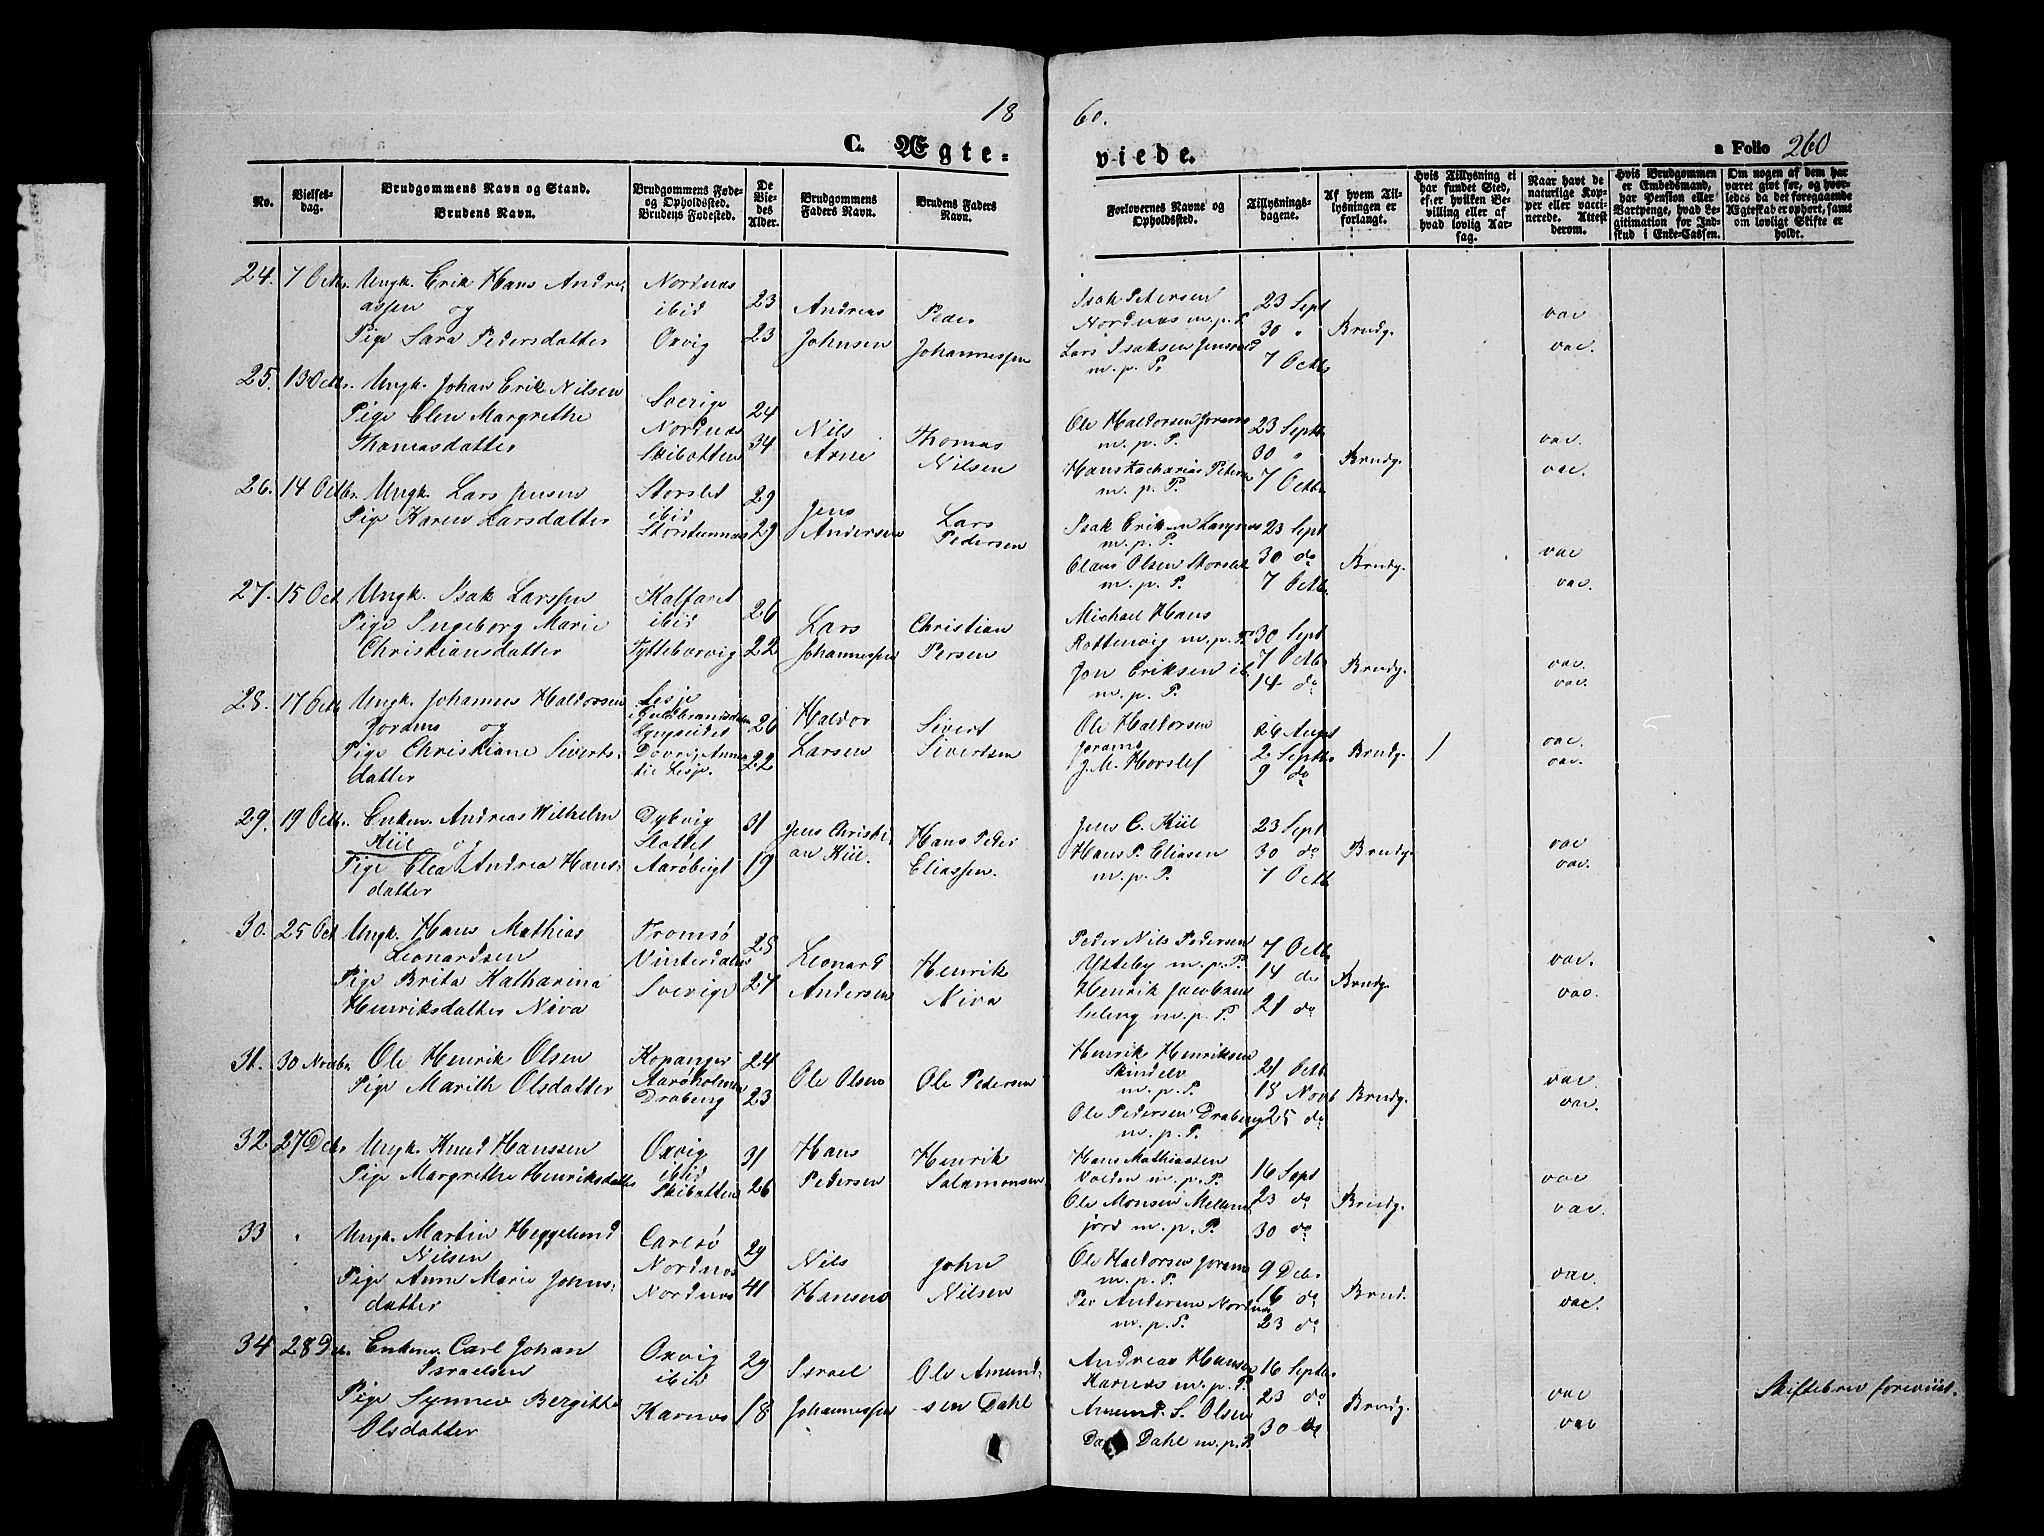 18 60.
C. Ægte= viede. a Folio 260
No.
Vielses-
dag.
Brudgommens Navn og Stand.
Brudens Navn.
Brudgommens Føde-
og Opholdsted.
Brudens Fødested.
De
Vie-
des
Alder.
Brudgommens
Faders Navn.
Brudens Faders
Navn.
Forlovernes Navne og
Opholdsted.
Tillysnings-
dagene.
Af hvem Til-
lysningen er
forlangt.
Hvis Tillysning ei
har fundet Sted,
efter hvilken Be-
villing eller af
hvad lovlig Aar-
sag.
Naar havt de
naturlige Kop-
per eller vacci-
nerede. Attest
derom.
Hvis Brudgommen
er Embedsmand,
har Pension eller
Vartpenge, hvad Le-
gitimation for Ind-
skud i Enke-Cassen.
Om nogen af dem har
været gift før, og hvor-
ledes da det foregaaende
Ægteskab er ophørt, samt
om lovligt Skifte er
holdt.
24. 7 Octbr. Ungk. Erik Hans Andre-
assen og
Pige Sara Pedersdatter
Nordnæs
ibid
Oxvig
23
23
Andreas
Johnsen
Peder
Johannessen
Isak Petersen
Nordnæs m. p. P.
Lars Isaksen
m. p. P.
23 Sept
30 "
7 Octbr
Brudg.
vac
vac.
25. 13 Octbr. Ungk. Johan Erik Nilsen
Pige Elen Margrethe
Thomasdatter
Sverige
Nordnæs
Skibotten
24
34
Nils
Arne
Thomas
Nilsen
Ole Haldorsen Joramo
m. p. P.
Hans Zacharias Peters
m. p. P.
23 Septbr
30 "
7 Octbr
Brudg.
vac.
vac.
26. 14 Octbr. Ungk. Lars Jensen
Pige Karen Larsdatter
Storslet
ibid
29
29
Jens
Andersen
Lars
Pedersen
Isak
m. p. P.
Olaus Olsen Storslet
m. p. P.
23 Sept
30 do
7 Octb.
Brudg.
vac
vac.
27. 15 Oct Ungk. Isak Larssen
Pige Ingeborg Marie
Christiansdatter
Kalfaret
ibid
Tyttebærvig
26
22
Lars
Johannessen
Christian
Persen
Michael Hans
Rottenvig m. p. P.
Jon Eriksen ib.
m. p. P.
30 Sept
7 Octb
14 do
Brudg.
vac.
vac.
28. 17 Octb Ungk. Johannes Haldorsen
Joramo og
Pige Christiane Siverts-
datter
Lesje
i Guldbrandsdalen
Lyngseidet
Dovre, Annex
til Lesje.
26
22
Haldor
Larsen
Sivert
Sivertsen
Ole Haldorsen
Joramo
J. M. Horslef
26 August
2 Septbr
9 do
Brudg.
/
vac.
vac.
29. 19 Octb. Enkem. Andreas Wilhelm
Kiil og
Pige Elea Andrea Hans-
datter
Dybvig
Slottet
Aarøbugt
31
19
Jens Christi-
an Kiil.
Hans Peder
Eliassen.
Jens C. Kiil
Hans P. Eliasen
m. p. P.
23 Sept
30 do
7 Octb
Brudg.
vac
vac.
30. 25 Oct Ungk. Hans Mathias
Leonardsen
Pige Brita Katharina
Henriksdatter Niva
Tromsø
Vinterdalen
Sverige
25
27
Leonard
Andersen
Henrik
Niva
Peder Nils Pedersen
Ytteby m. p. P.
Henrik Jacobsen
m. p. P.
7 Octb.
14 do
21 do
Brudg.
vac.
vac.
31. 30 Novbr. Ole Henrik Olsen
Pige Marith Olsdatter
Kopanger
Aarøholmen
Drabeng
24
23
Ole Olsen
Ole Pedersen
Henrik Henriksen
Skindelv
m. p. P.
Ole Pedersen Drabeng
m. p. P.
21 Octb
18 Novb
25 do
Brudg.
vac.
vac.
32. 27 Dcb. Ungk. Knud Hanssen
Pige Margrethe Henriksdatter
Oxvig
ibid
Skibotten
31
26
Hans
Pedersen
Henrik
Salamonsen
Hans Mathiassen
m. p. P.
Ole Monsen
jord m. p. P.
16 Sept
23 do
30 do
Brudg.
vac
vac.
33 " Ungk. Martin Heggelund
Nilsen
Pige Anne Marie Johns-
datter
Carlsø
Nordnæs
Nordnæs
29
41
Nils
Hansen
John
Nilsen
Ole Haldorsen Joramo
m. p. P.
Per Andersen Nordnæs
m. p. P.
9 Debr
16 do
23 do
Brud.
vac.
vac.
34 28 Dcb. Enkem. Carl Johan
Israelsen
Pige Synnev Bergitte
Olsdatter
Oxvig
ibid
Karnæs
29
18
Israel
Johannessen
Ole Amund-
sen Dahl
Andreas Hansen
Karnæs m. p. P.
Amund S. Olsen
Dahl m. p. P.
16 Septbr
23 do
30 do
Brudg.
vac
vac
Skiftebrev foreviist.